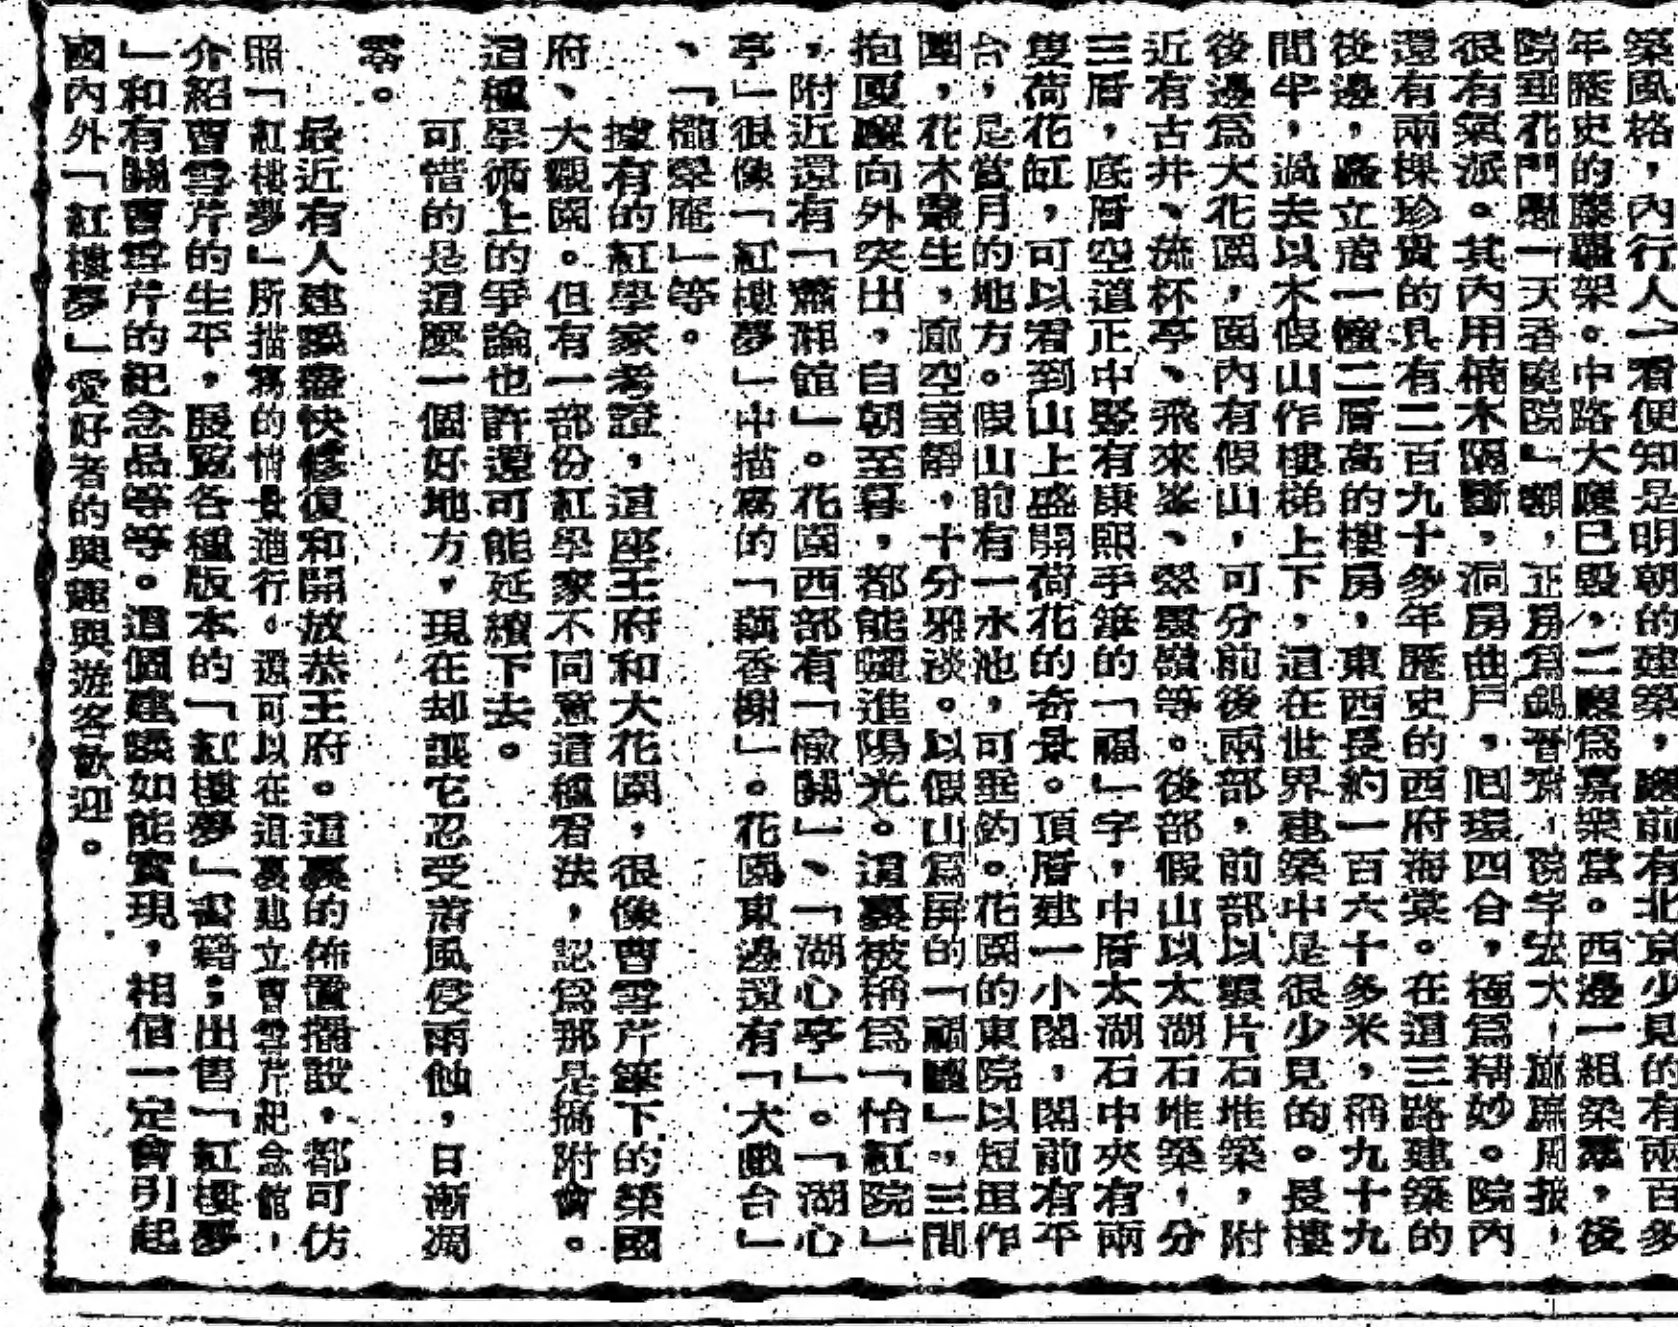 築風格，內行人一看便知是明朝的建築，廳前有北京少見的有兩百多
年歷史的藤蘿架。中路大廳已毀，二殿爲嘉樂堂。西邊一組梁寬，後
院垂花門懸「天香庭院」額，正房爲錫晋齋，院宇宏大，廊廡周接，
很有氣派。其內用楠木隔斷，洞房曲戶，回環四合，極爲精妙。院內
還有兩棵珍貴的具有二百九十多年歷史的西府海棠。在這三路建築的
後邊，矗立着一幢二層高的樓房，東西長約一百六十多米，稱九十九
間半，過去以木假山作樓梯上下，這在世界建築中是很少見的。長樓
後邊爲大花園，園內有假山，可分前後兩部，前部以雲片石堆築，附
近有古井、流杯亭、飛來峯、翠雲嶺等。後部假山以太湖石堆築，分
三層，底層空道正中竪有康熙手筆的「福」字，中層太湖石中夾有兩
隻荷花缸，可以看到山上盛開荷花的奇景。頂層建一小閣，閣前有平
台，是當月的地方。假山前有一水池，可垂釣。花園的東院以短垣作
圍，花木叢生，廊空室靜，十分雅淡。以假山爲屏的「福廳」，三間
抱厦廳向外突出，自朝至暮，都能曬進陽光。這裏被稱爲「怡紅院」
，附近還有「瀟湘館」。花園西部有「榆關」、「湖心亭」。「湖心
亭」很像「紅樓夢」中描寫的「藕香榭」。花園東邊還有「大戲台」
、「櫳翠庵」等。
據有的紅學家考證，這座王府和大花園，很像曹雪芹筆下的榮國
府、大觀園。但有一部份紅學家不同意這種看法，認爲那是搞附會。
這種學術上的爭論也許還可能延續下去。
可惜的是這麼一個好地方，現在却讓它忍受着風侵雨蝕，日漸凋
零。
最近有人建議盡快修復和開放恭王府。這裏的佈置擺設，都可仿
照「紅樓夢」所描寫的情景進行。還可以在這裏建立曹雪芹紀念館，
介紹曹雪芹的生平，展覽各種版本的「紅樓夢」書籍；出售「紅樓夢
」和有關曹雪芹的紀念品等等。這個建議如能實現，相信一定會引起
國內外「紅樓夢」愛好者的興趣與遊客歡迎。